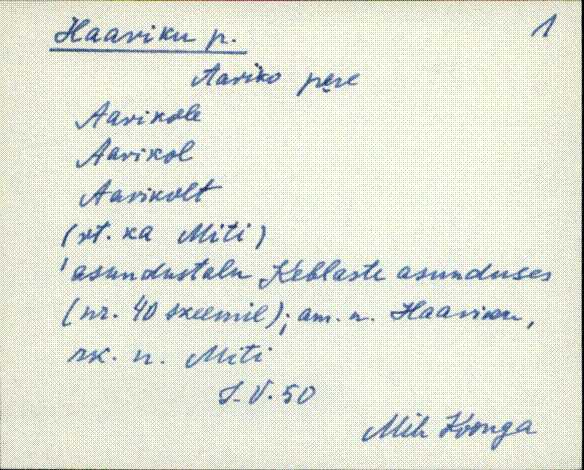 Haariku p. 1
Aariko pęre
Aarikole
Aarikol
Aarikolt
(vt. ka Miti)
'asundustalu Keblaste asunduses
(nr. 40 skeemil); am. n. Haariku,
rk. n. Miti
J.V. 50
Mih Koonga